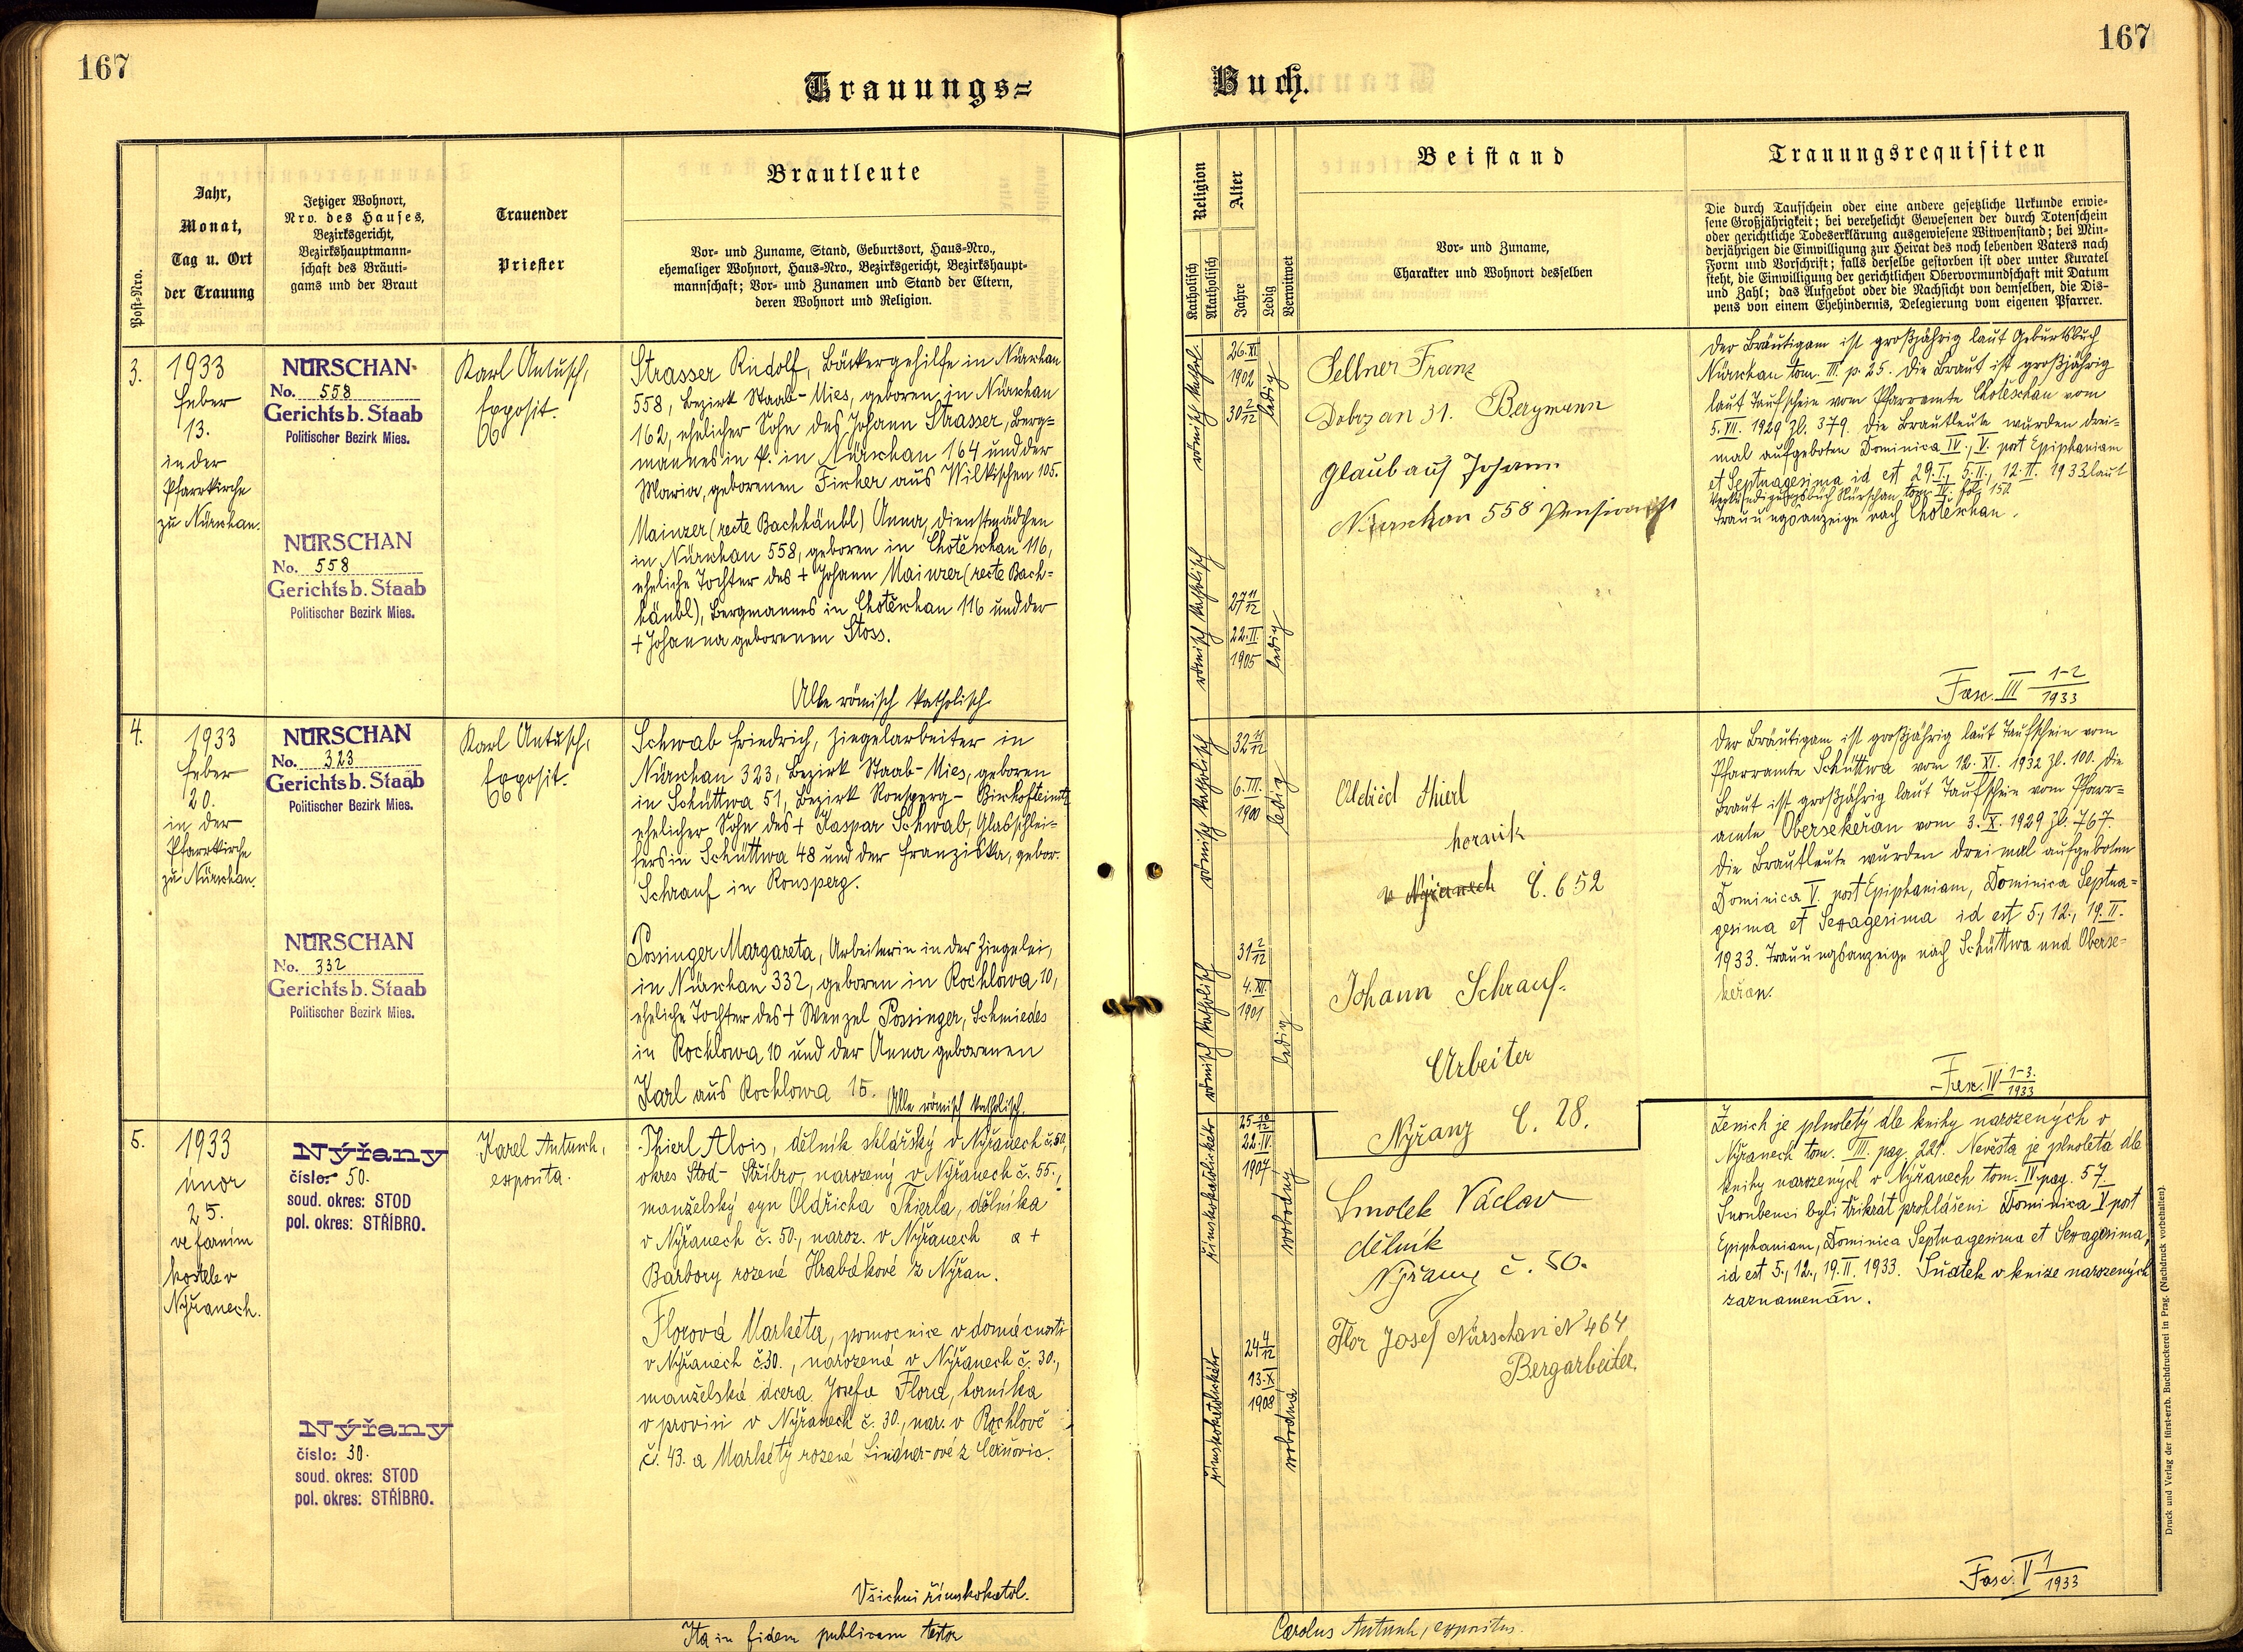 167
167
Trauungs=
Buch.
Post-Nro.
Jahr,
Monat,
Tag u. Ort
der Trauung
Jetziger Wohnort,
Nro. des Hauses,
Bezirksgericht,
Bezirkshauptmann-
schaft des Bräuti-
gams und der Braut
Trauender
Priester
Brautleute
Vor- und Zuname, Stand, Geburtsort, Haus-Nro.,
ehemaliger Wohnort, Haus-Nro., Bezirksgericht, Bezirkshaupt-
mannschaft; Vor- und Zunamen und Stand der Eltern,
deren Wohnort und Religion.
Religion
Katholisch
Akatholisch
Alter
Jahre
Ledig
Verwitwet
Beistand
Vor- und Zuname,
Charakter und Wohnort desselben
Trauungsrequisiten
Die durch Taufschein oder eine andere gesetzliche Urkunde erwie-
sene Großjährigkeit; bei verehelicht Gewesenen der durch Totenschein
oder gerichtliche Todeserklärung ausgewiesene Witwenstand; bei Min-
derjährigen die Einwilligung zur Heirat des noch lebenden Vaters nach
Form und Vorschrift; falls derselbe gestorben ist oder unter Kuratel
steht, die Einwilligung der gerichtlichen Obervormundschaft mit Datum
und Zahl; das Aufgebot oder die Nachsicht von demselben, die Dis-
pens von einem Ehehindernis, Delegierung vom eigenen Pfarrer.
3.
1933
Feber
13.
in der
Pfarrkirche
zu Nürschan.
NÜRSCHAN
No. 558
Gerichtsb. Staab
Politischer Bezirk Mies.
NÜRSCHAN
No. 558
Gerichtsb. Staab
Politischer Bezirk Mies.
Karl Antusch,
Exposit.
Strasser Rudolf, Bäckergehilfe in Nürschan
558, Bezirk Staab-Mies, geboren in Nürschan
162, ehelicher Sohn des Johann Strasser, Berg=
mannes in P. in Nürschan 164 und der
Maria, geborenen Fischer aus Wilkischen 105.
Mainzer (recte Bachhäubl) Anna, Dienstmädchen
in Nürschan 558, geboren in Chotěschau 116,
eheliche Tochter des + Johann Mainzer (recte Bach=
häubl), Bergmannes in Chotěschau 116 und der
+ Johanna geborenen Stoss.
Alle römisch katholisch
römisch kathol.
26. XI.
1902
30 2/12
ledig
römisch katholisch
27 11/12
22. II.
1905
ledig
Sellner Franz
Dobrzan 31. Bergmann
Glaubauf Johann
Nürschan 558 Pensionist
Der Bräutigam ist großjährig laut Geburtsbuch
Nürschan tom. III. p. 25. Die Braut ist großjährig
laut Taufschein vom Pfarramte Chotěschau vom
5. VII. 1929 Zl. 379. Die Brautleute wurden drei-
mal aufgeboten Dominica IV., V. post Epiphaniam
et Septuagesima id est 29. I., 5. II., 12. II. 1933 laut
Verkündigungsbuch Nürschan tom. IV. fol. 152
Trauungsanzeige nach Chotěschau.
Fasc. III 1-2/1933
4.
1933
Feber
20.
in der
Pfarrkirche
zu Nürschan.
NÜRSCHAN
No. 323
Gerichtsb. Staab
Politischer Bezirk Mies.
NÜRSCHAN
No. 332
Gerichtsb. Staab
Politischer Bezirk Mies.
Karl Antusch,
Exposit.
Schwab Friedrich, Ziegelarbeiter in
Nürschan 323, Bezirk Staab-Mies, geboren
in Schüttwa 51, Bezirk Ronsperg-Bischofteinitz
ehelicher Sohn des + Kaspar Schwab, Glasschlei=
fers in Schüttwa 48 und der Franziska, gebor.
Schrauf in Ronsperg.
Possinger Margareta, Arbeiterin in der Ziegelei,
in Nürschan 332, geboren in Rochlowa 10,
eheliche Tochter des + Wenzel Possinger, Schmiedes
in Rochlowa 10 und der Anna geborenen
Karl aus Rochlowa 15.
Alle römisch katholisch.
römisch katholisch
32 11/12
6. III.
1900
ledig
römisch katholisch
31 2/12
4. XI.
1901
ledig
Oldřich Thierl
horník
v Nýřanech č. 652
Johann Schrauf.
Arbeiter
Nýřany č. 28.
Der Bräutigam ist großjährig laut Taufschein vom
Pfarramte Schüttwa vom 12. XI. 1932 Zl. 100. Die
Braut ist großjährig laut Taufschein vom Pfarr=
amte Obersekeřan vom 3. X. 1929 Zl. 767.
Die Brautleute wurden dreimal aufgeboten
Dominica V. post Epiphaniam, Dominica Septua=
gesima et Sexagesima id est 5., 12., 19. II.
1933. Trauungsanzeige nach Schüttwa und Oberse=
keřan.
Fasc. IV 1-3./1933
5.
1933
únor
25.
ve farním
kostele v
Nýřanech.
Nýřany
číslo: 50.
soud. okres: STOD
pol. okres: STŘÍBRO.
Nýřany
číslo: 30.
soud. okres: STOD
pol. okres: STŘÍBRO.
Karel Antusch,
exposita.
Thierl Alois, dělník sklářský v Nýřanech č. 50,
okres Stod-Stříbro, narozený v Nýřanech č. 55.,
manželský syn Oldřicha Thierla, dělníka
v Nýřanech č. 50., naroz. v Nýřanech a +
Barbory rozené Hrabákové z Nýřan.
Florová Markéta, pomocnice v domácnosti
v Nýřanech č. 30., narozená v Nýřanech č. 30.,
manželská dcera Josefa Flora, horníka
v provisi v Nýřanech č. 30., nar. v Rochlově
č. 43. a Markéty rozené Lindner-ové z Černovic.
Všichni římskokatol.
římskokatolického
25 10/12
22. IV.
1907
svobodný
římskokatolického
24 4/12
13. X
1908
svobodná
Smolek Václav
dělník
Nýřany č. 50.
Flor Josef Nürschan N 464
Bergarbeiter.
Ženich je plnoletý dle knihy narozených v
Nýřanech tom. III. pag. 221. Nevěsta je plnoletá dle
knihy narozených v Nýřanech tom. IV. pag. 57.
Snoubenci byli třikrát prohlášeni Dominica V post
Epiphaniam, Dominica Septuagesima et Sexagesima,
id est 5., 12., 19. II. 1933. Sňatek v knize narozených
zaznamenán.
Fasc. V 1/1933
Ita in fidem publicam testor
Carolus Antusch, expositus.
Druck und Verlag der fürst-erzb. Buchdruckerei in Prag. (Nachdruck vorbehalten).